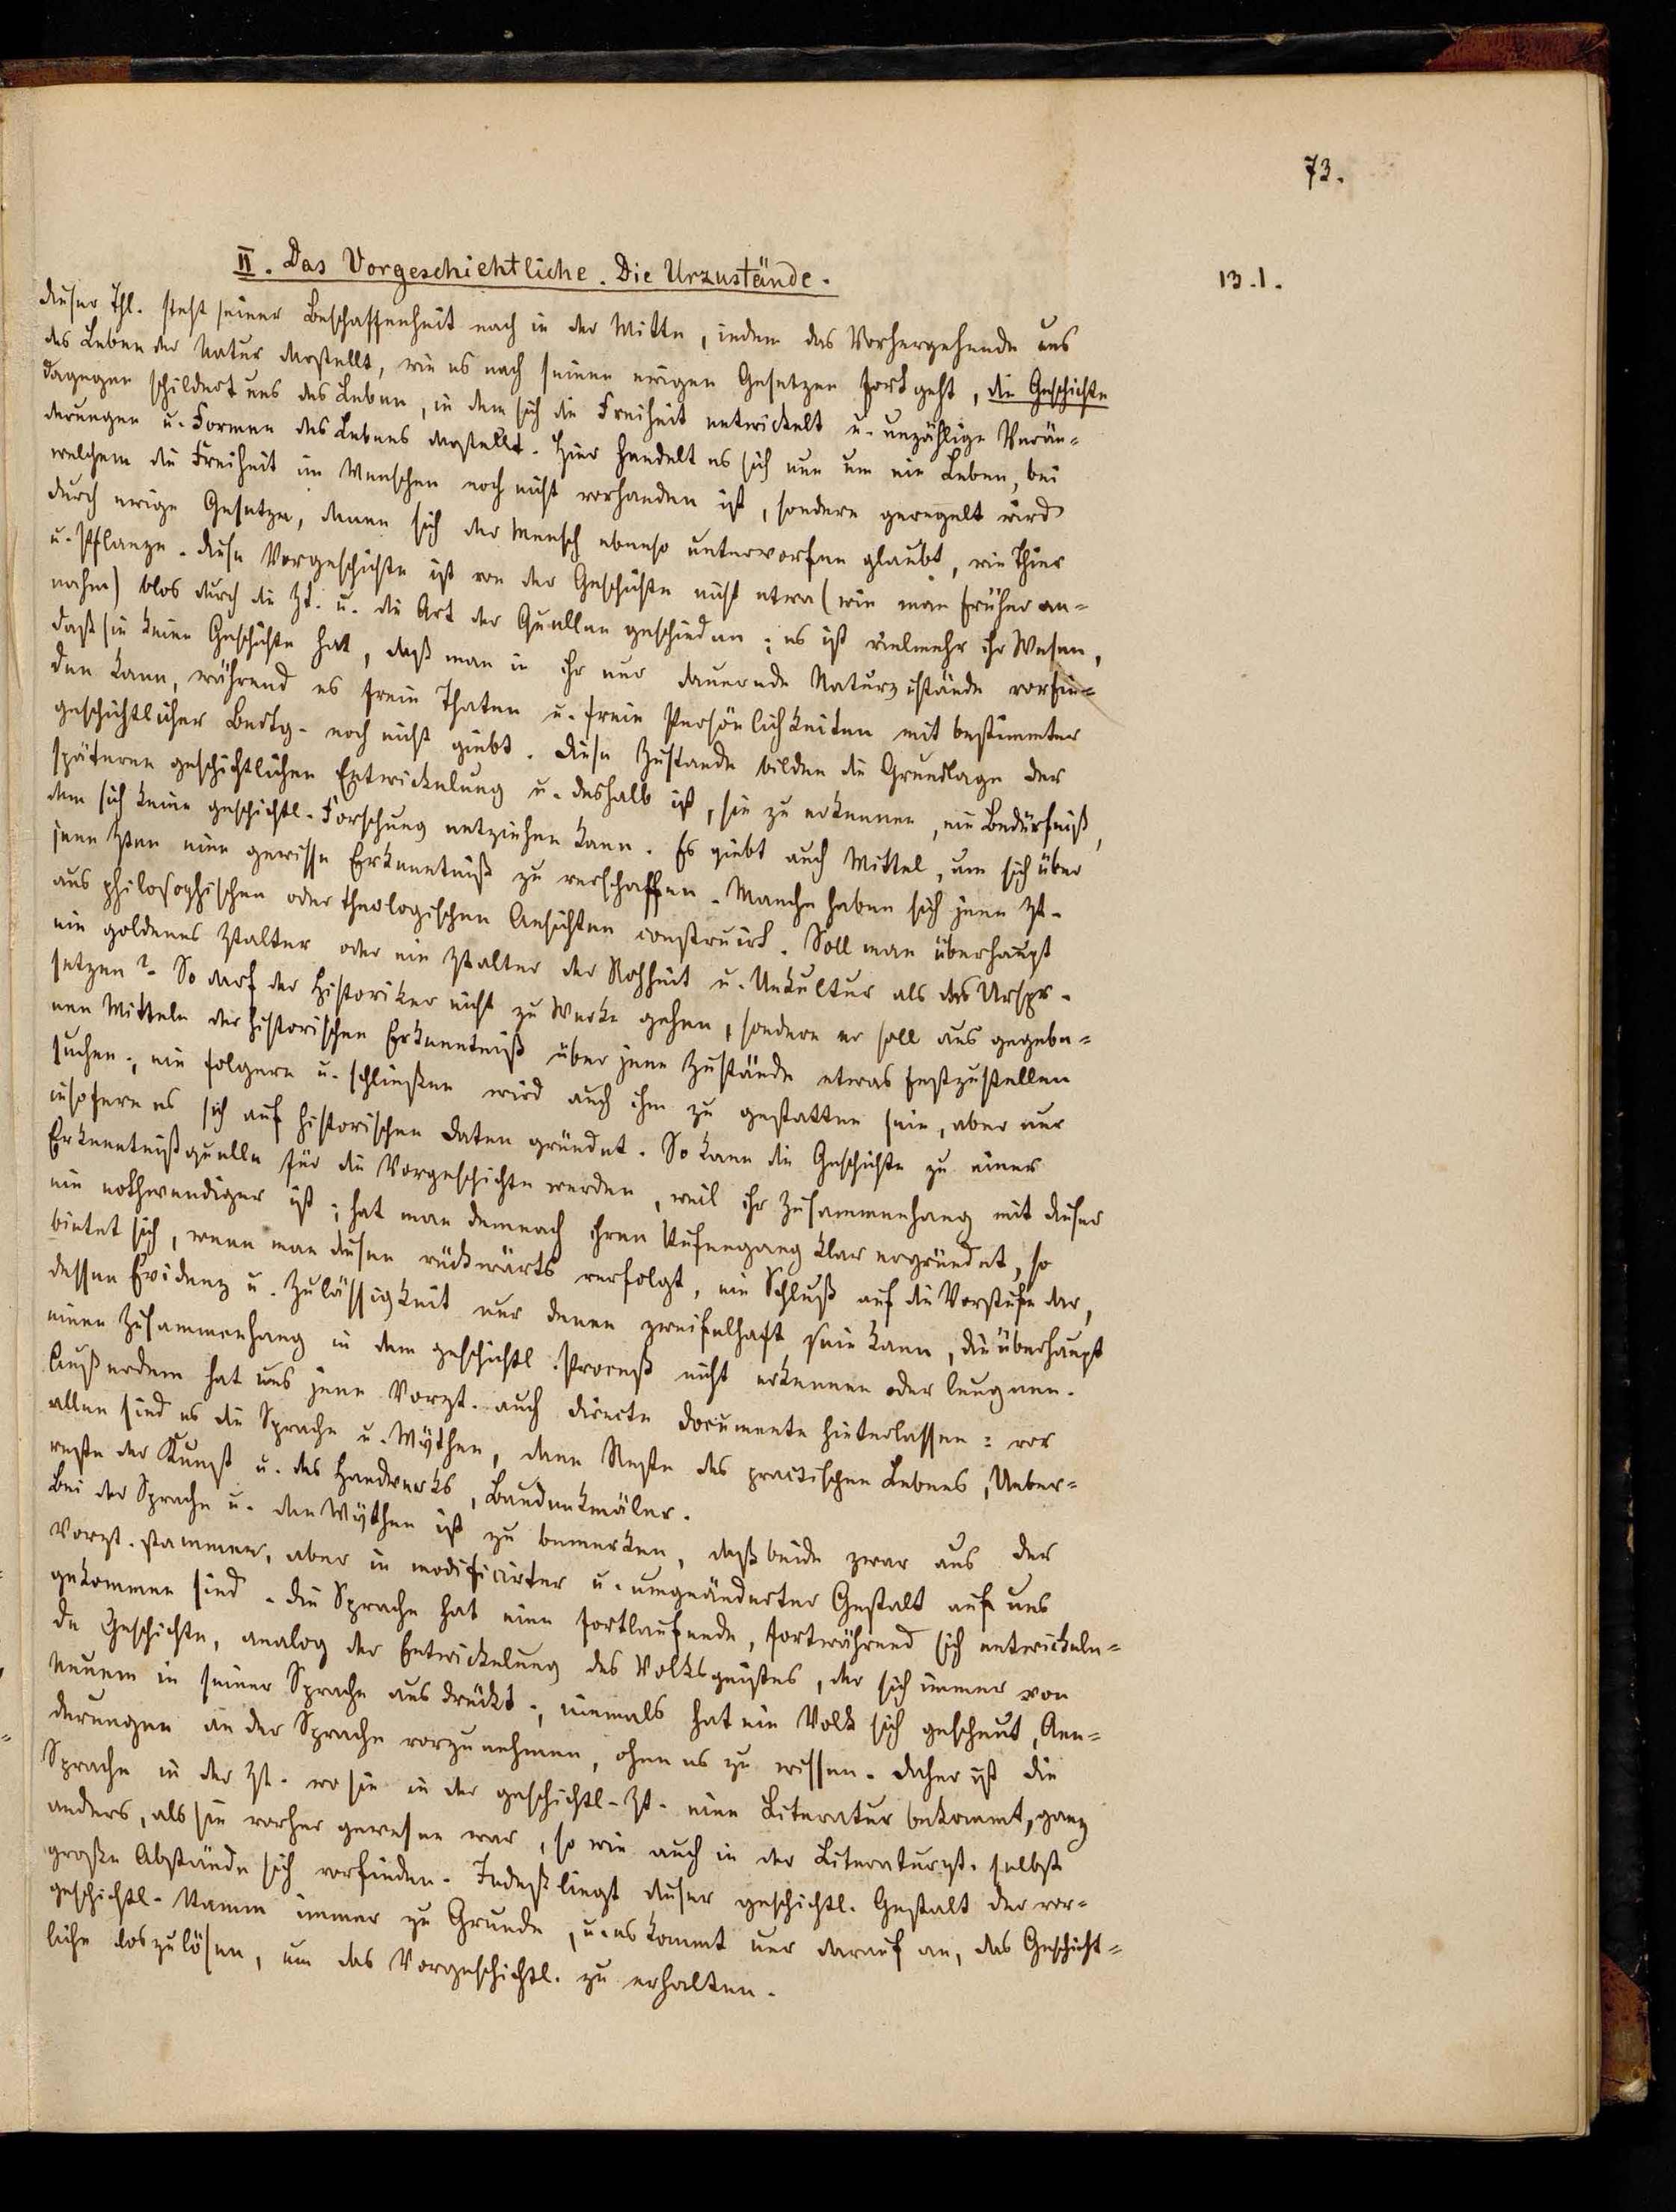 73.
II. Das Vorgeschichtliche. Die Urzustände.
13.1.
Dieser Thl. steht seiner Beschaffenheit nach in der Mitte, indem das Vorhergehende uns
das Leben der Natur darstellt, wie es nach seinen ewigen Gesetzen fortgeht, die Geschichte
dagegen schildert uns das Leben, in dem sich die Freiheit entwickelt u. unzählige Verän-
derungen u. Formen des Lebens darstellt. Hier handelt es sich nun um ein Leben, bei
welchem die Freiheit im Menschen noch nicht vorhanden ist, sondern geregelt wird
durch ewige Gesetze, denen sich der Mensch ebenso unterworfen glaubt, wie Thier
u. Pflanze. Diese Vorgeschichte ist von der Geschichte nicht etwa (wie man früher an-
nahm) blos durch die Zt. u. die Art der Quellen geschieden; es ist vielmehr ihr Wesen,
daß sie keine Geschichte hat, daß man in ihr nur dauernde Naturzustände vorfin-
den kann, während es freie Thaten u. freie Persönlichkeiten mit bestimmter
geschichtlicher Bedtg. noch nicht giebt. Diese Zustände bilden die Grundlage der
späteren geschichtlichen Entwickelung u. deshalb ist, sie zu erkennen, ein Bedürfniß,
dem sich keine geschichtl. Forschung entziehen kann. Es giebt auch Mittel, um sich über
jene Zten eine gewisse Erkenntniß zu verschaffen. Manche haben sich jene Zt.
aus philosophischen oder theologischen Ansichten construirt. Soll man überhaupt
ein goldenes Ztalter oder ein Ztalter der Rohheit u. Unkultur als das Urspr.
setzen? So darf der Historiker nicht zu Werke gehen, sondern er soll aus gegebe-
nen Mitteln der historischen Erkenntniß über jene Zustände etwas festzustellen
suchen; ein folgern u. schließen wird auch ihm zu gestatten sein, aber nur
insofern es sich auf historischen Daten gründet. So kann die Geschichte zu einer
Erkenntnißquelle für die Vorgeschichte werden, weil ihr Zusammenhang mit dieser
ein nothwendiger ist; hat man demnach ihren Stufengang klar ergründet, so
bietet sich, wenn man diesen rückwärts verfolgt, ein Schluß auf die Vorstufe dar,
dessen Evidenz u. Zulässigkeit nur denen zweifelhaft sein kann, die überhaupt
einen Zusammenhang in dem geschichtl. Proceß nicht erkennen oder leugnen.
Außerdem hat uns jene Vorzt. auch directe Documente hinterlassen: vor
allen sind es die Sprache u. Mythen, dann Reste des practischen Lebens, Ueber-
reste der Kunst u. des Handwerks, Baudenkmäler.
Bei der Sprache u. den Mythen ist zu bemerken, daß beide zwar aus der
Vorzt. stammen, aber in modificirter u. umgeänderter Gestalt auf uns
gekommen sind. Die Sprache hat eine fortlaufende, fortwährend sich entwickeln-
de Geschichte, analog der Entwickelung des Volksgeistes, der sich immer von
Neuem in seiner Sprache ausdrückt; niemals hat ein Volk sich gescheut, Aen-
derungen an der Sprache vorzunehmen, ohne es zu wissen. Daher ist die
Sprache in der Zt. wo sie in der geschichtl. Zt. eine Literatur bekommt, ganz
anders, als sie vorher gewesen war, so wie auch in der Literaturzt. selbst
große Abstände sich vorfinden. Indeß liegt dieser geschichtl. Gestalt der vor-
geschichtl. Stamm immer zu Grunde, u. es kommt nur darauf an, das Geschicht-
liche loszulösen, um das Vorgeschichtl. zu erhalten.